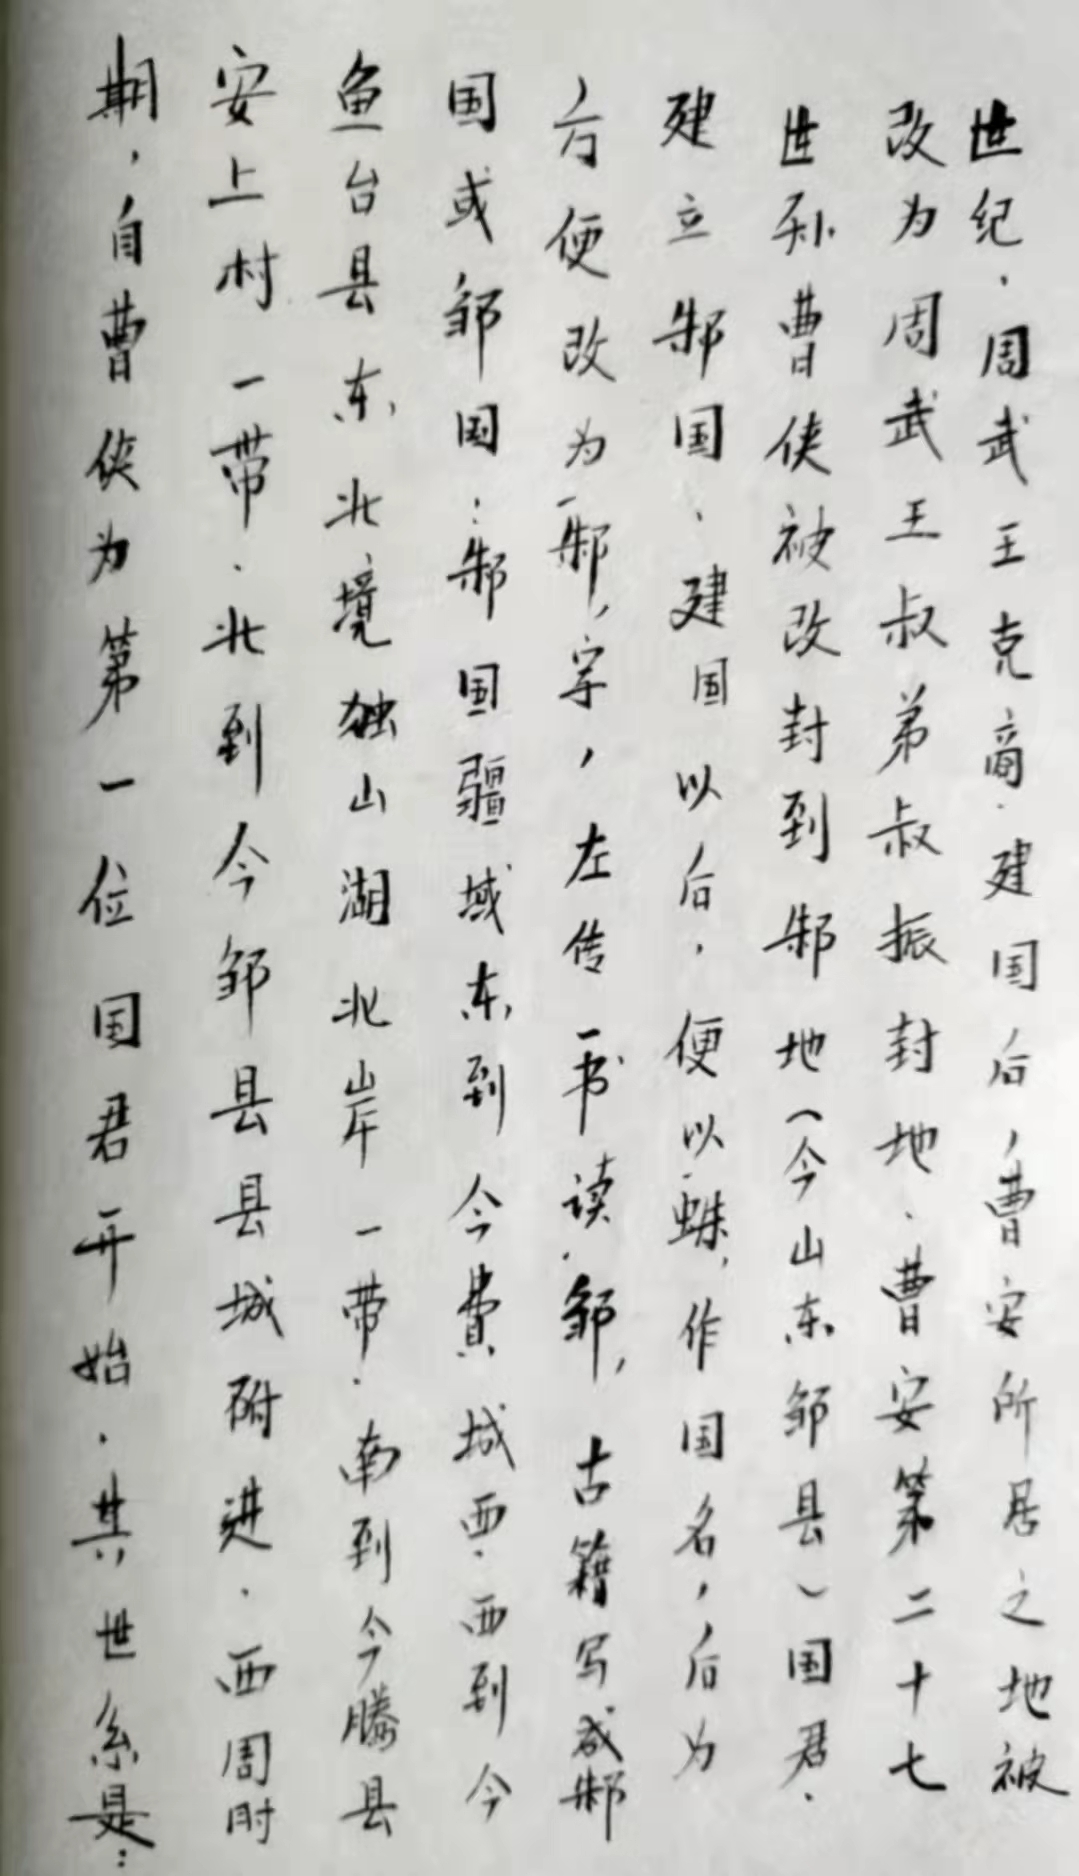 世纪.周武王克商.建国后,曹安所居之地被
改为周武王叔弟叔振封地.曹安第二十七
世孙曹侠被改封到邾地(今山东邹县)国君.
建立邾国.建国以后,便以蛛,作国名,后为
方便改为邾,字,左传一书读.邹,古籍写成邾
国或邹国:邾国疆域东到今费城西.西到今
鱼台县东北境独山湖北岸一带.南到今滕县
安上村一带.北到今邹县县城附进.西周时
期,自曹侠为第一位国君开始.其世系是: